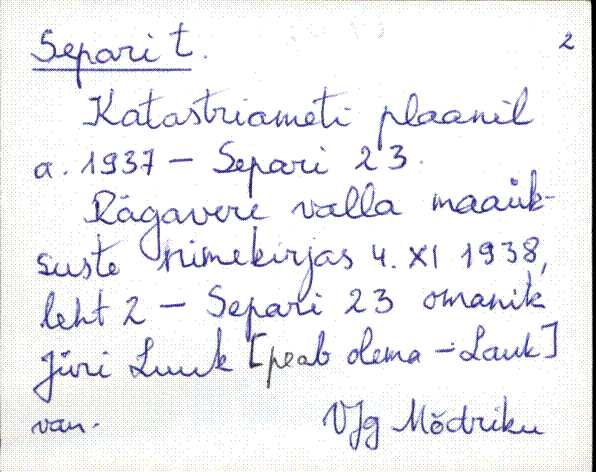 Separi t. 2
Katastriameti plaanil
a. 1937 — Separi 23.
Rägavere valla maaük-
suste nimekirjas 4. XI 1938,
leht 2 — Separi 23 omanik
Jüri Luuk [peab olema - Lauk]
van. VJg Mõdriku